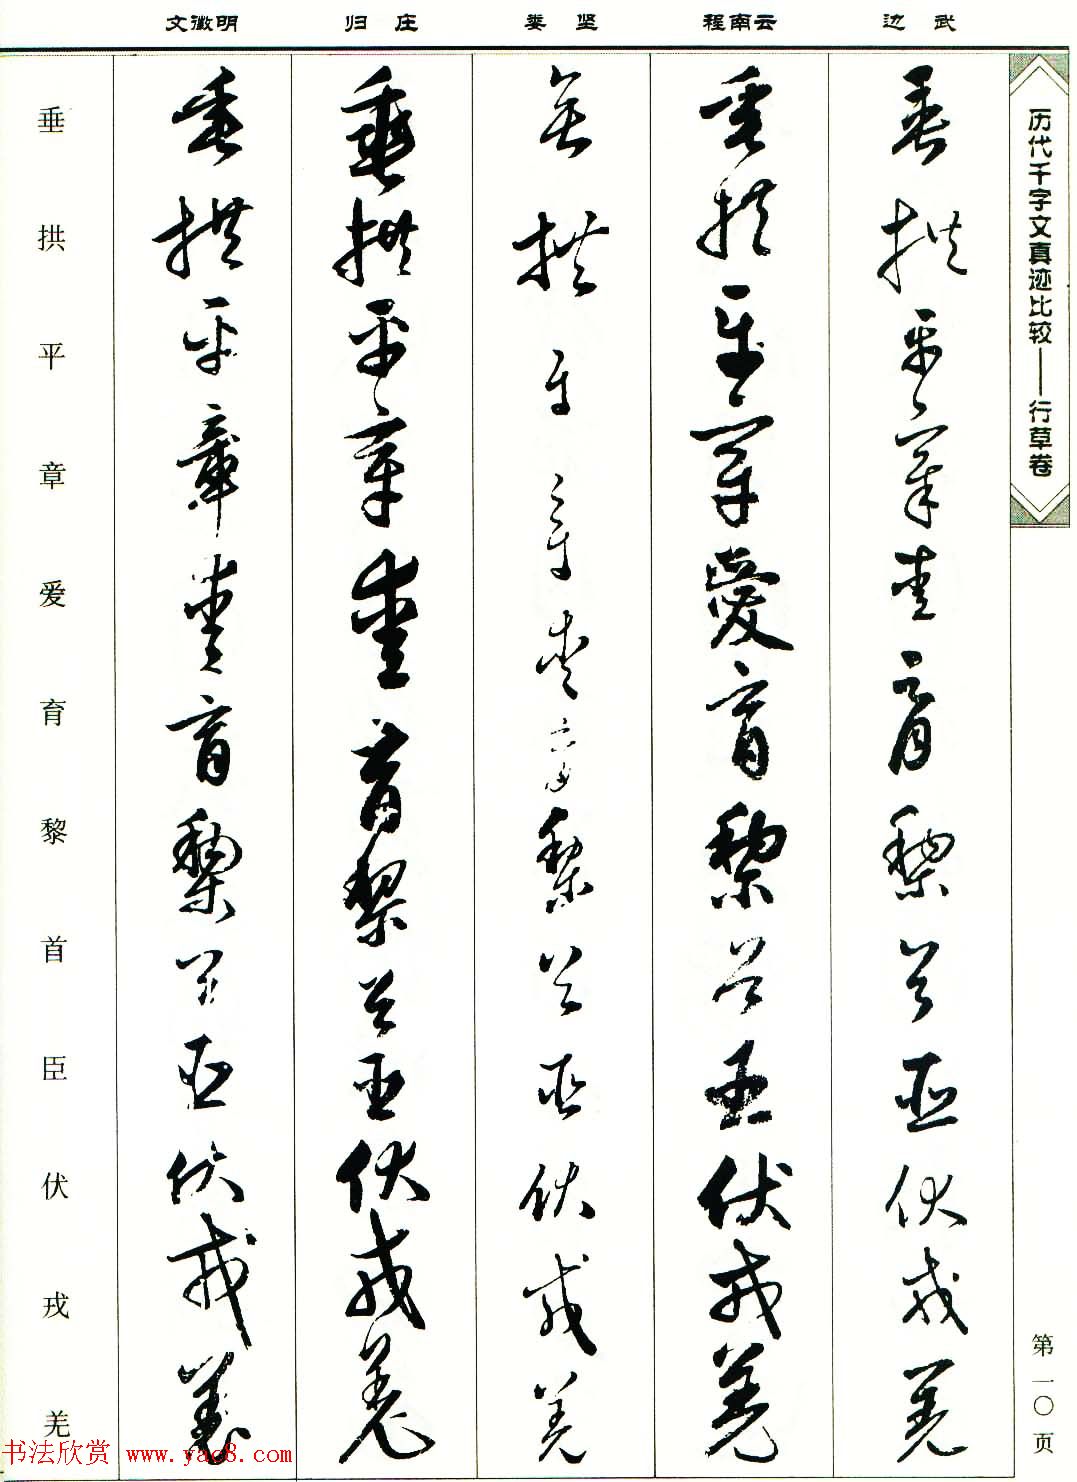 文徵明
归 庄
娄 坚
程南云
边 武
历代千字文真迹比较——行草卷
垂拱平章愛育黎首臣伏戎羌
垂拱平章愛育黎首臣伏戎羌
垂拱平章愛育黎首臣伏戎羌
垂拱平章愛育黎首臣伏戎羌
垂拱平章愛育黎首臣伏戎羌
垂拱平章爱育黎首臣伏戎羌
第一〇页
书法欣赏 www.yac8.com